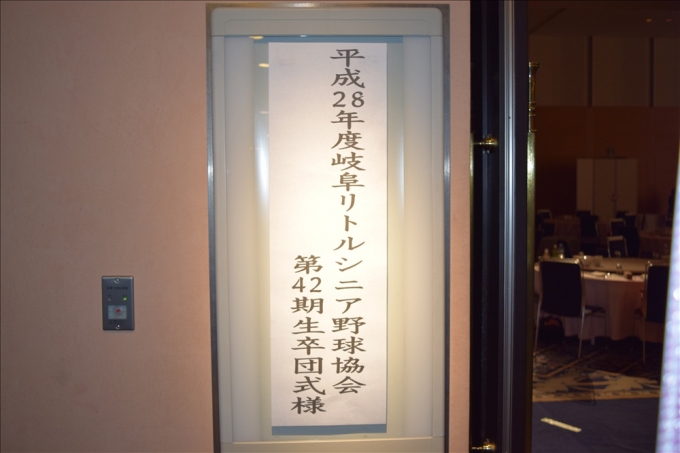 平成28年度岐阜リトルシニア野球協会
第42期生卒団式様